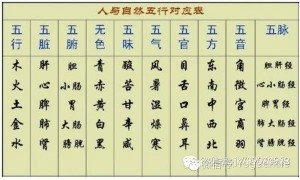 人与自然五行对应表
五行 五脏 五腑 五色 五味 五气 五官 五方 五音 五脉
木 肝 胆 青 酸 风 目 东 角 胆肝经
火 心 小肠 赤 苦 暑 舌 南 徵 心小肠经
土 脾 胃 黄 甘 湿 口 中 宫 脾胃经
金 肺 大肠 白 辛 燥 鼻 西 商 肺大肠经
水 肾 膀胱 黑 咸 寒 耳 北 羽